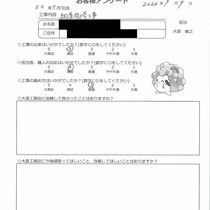 お客様アンケート
84 年 1 月完成
2022年9月9日
工事内容
お名前
ご住所
担当
大森 敏之
①工事の出来はいかがでしたか？(数字に○をしてください)
5 4 3 2 1
大満足 満足 普通 不満 大不満
②担当者、職人の対応はいかがでしたか？(数字に○をしてください)
5 4 3 2 1
大満足 満足 普通 不満 大不満
③工事の進め方はいかがでしたか？(数字に○をしてください)
5 4 3 2 1
大満足 満足 普通 不満 大不満
◇大森工務店に依頼して良かったことはありますか？
◇大森工務店に今後頑張ってほしいこと、改善してほしいことはありますか？